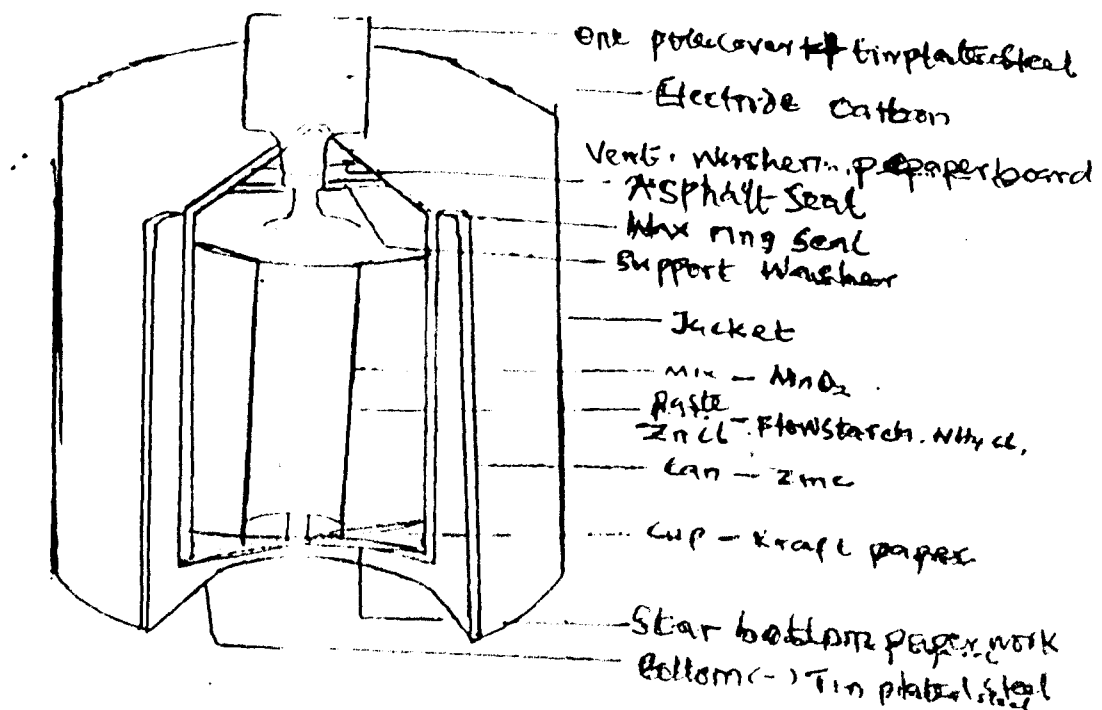 One pole cover tinplated steel
Electride Carbon
Vent. Washer paperboard
Asphalt Seal
Wax ring seal
Support Washer
Jacket
Mix - MnO2
Paste
- Flow Starch. NH4Cl.
Can - Zinc
Cup - Kraft paper
Star bottom paper work
Bottom (-) Tin plated steel